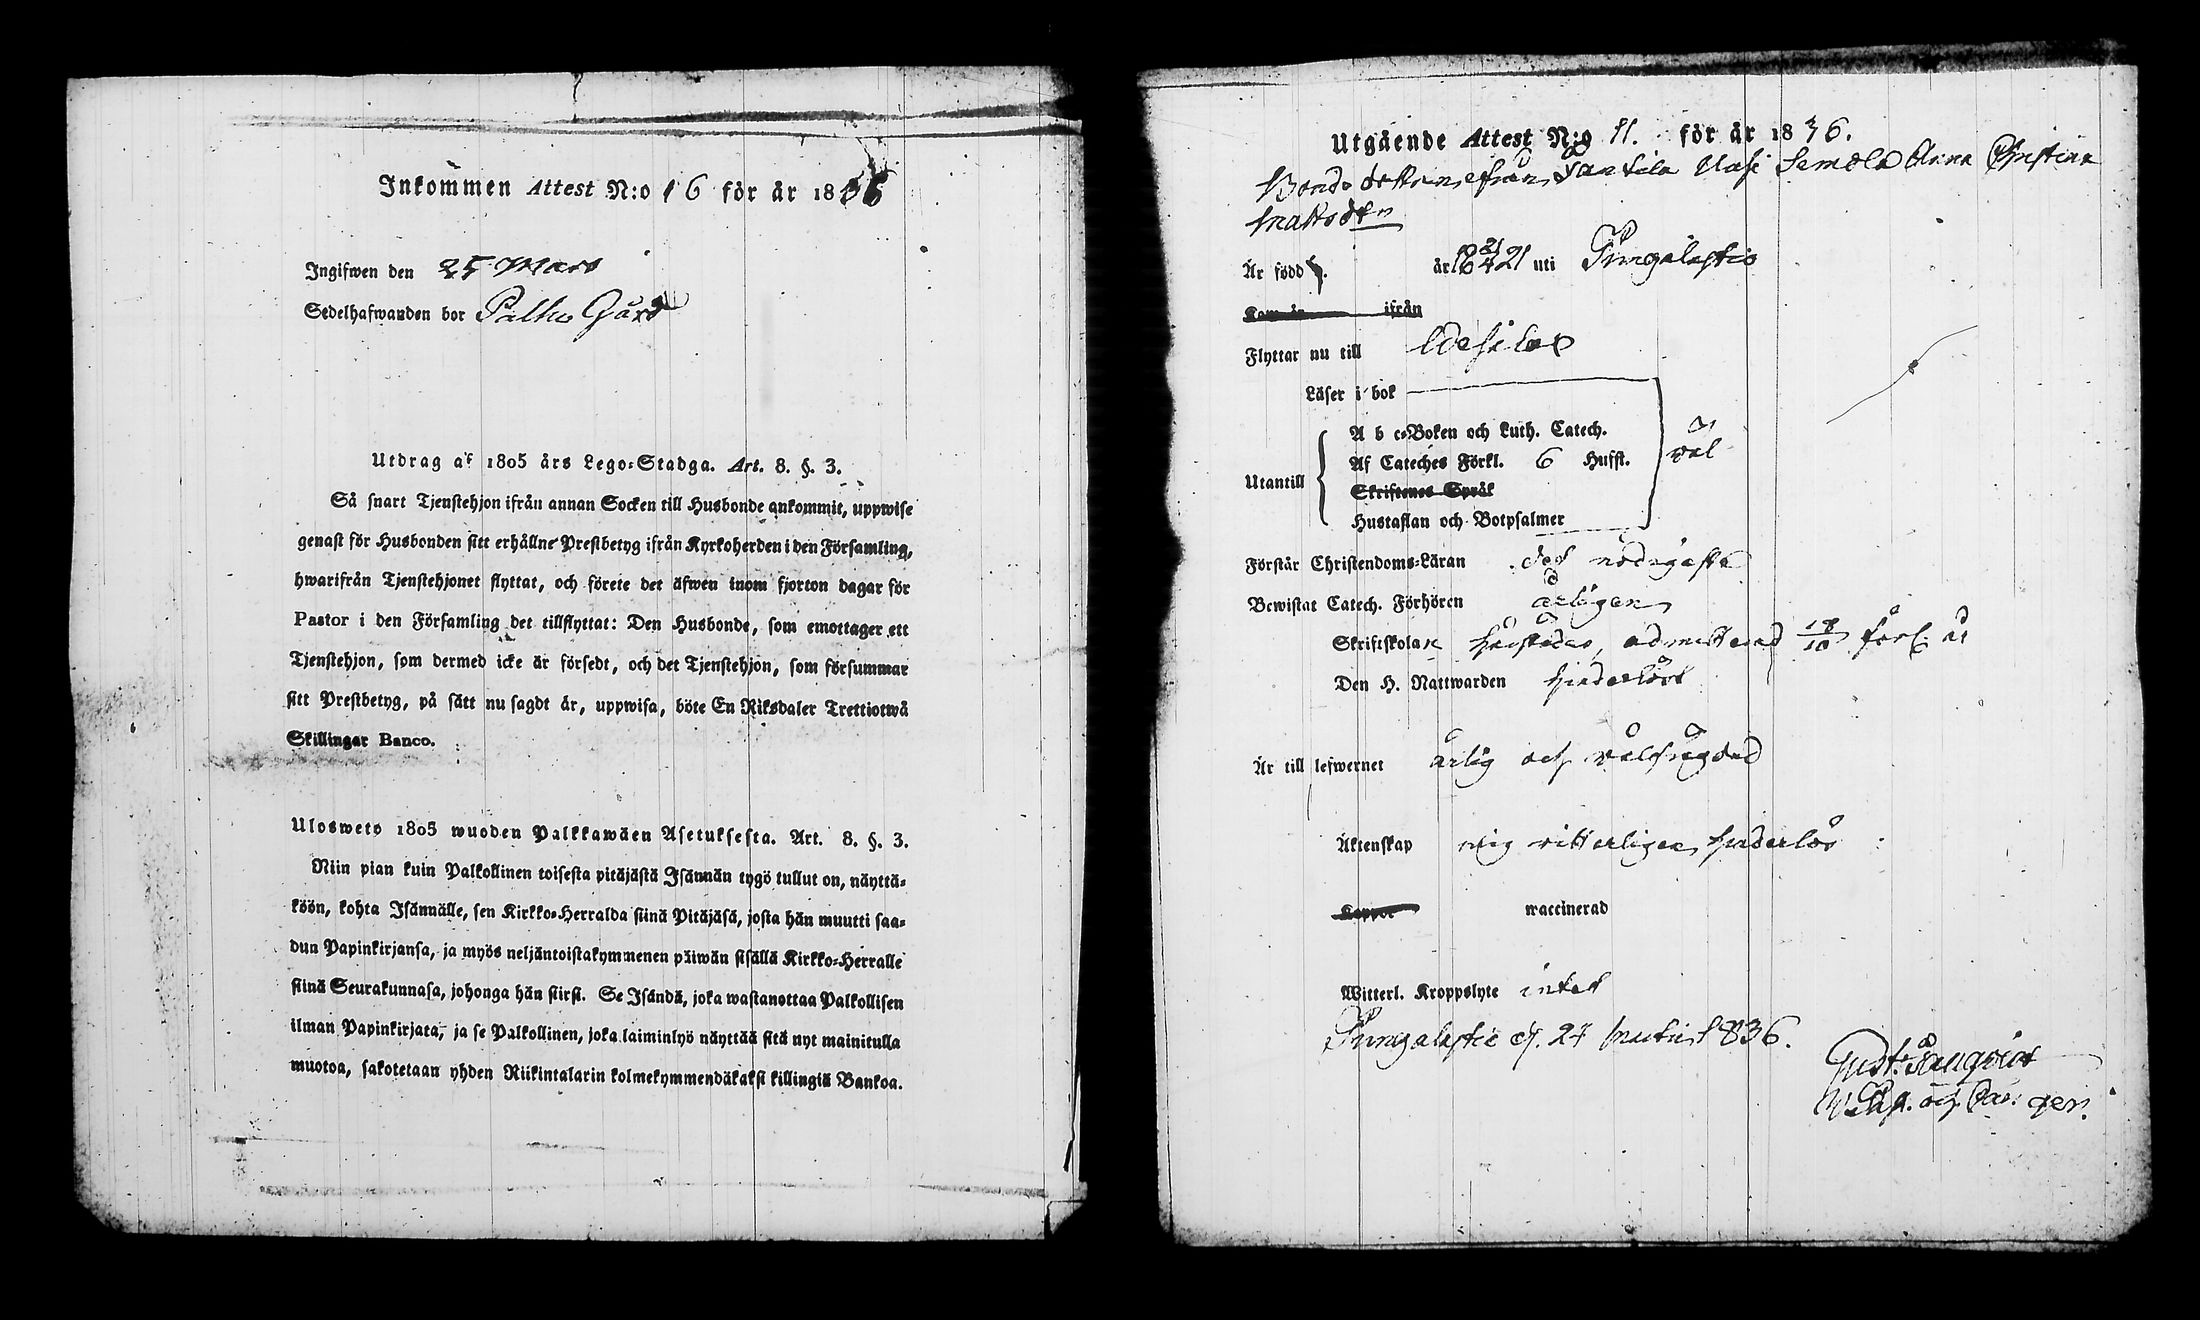 Inkommen Attest N:o 16 för år 1836
Ingifwen den 25 Mars
Sedelhafwanden bor Palhu Gård
Utdrag af 1805 års Lego-Stadga. Art. 8. §. 3.
Så snart Tjenstehjon ifrån annan Socken till Husbonde ankommit, uppwise
genast för Husbonden sitt erhållne Prestbetyg ifrån Kyrkoherden i den Församling,
hwarifrån Tjenstehjonet flyttat, och förete det äfwen inom fjorton dagar för
Pastor i den Församling det tillflyttat: Den Husbonde, som emottager ett
Tjenstehjon, som dermed icke är försedt, och det Tjenstehjon, som försummar
sitt Prestbetyg, på sätt nu sagdt är, uppwisa, böte En Riksdaler Trettiotwå
Skillingar Banco.
Ulosweto 1805 wuoden Palkkawäen Asetuksesta. Art. 8. §. 3.
Niin pian kuin Palkollinen toisesta pitäjästä Isännän tygö tullut on, näyttä-
köön, kohta Isännälle, sen Kirkko-Herralda siinä Pitäjäsä, josta hän muutti saa-
dun Papinkirjansa, ja myös neljäntoistakymmenen päiwän sisällä Kirkko-Herralle
siinä Seurakunnasa, johonga hän siirsi. Se Isändä, joka wastanottaa Palkollisen
ilman Papinkirjata, ja se Palkollinen, joka laiminlyö näyttää sitä nyt mainitulla
muotoa, sakotetaan yhden Riikintalarin kolmekymmendäkaksi killingiä Bankoa.
Utgående Attest N:o 11. för år 1836.
Bonde dottren ifrån Semola Anna Christina
Mattsdtr
Är född år 1821 uti Pungalaitio
Kom år ifrån
Flyttar nu till Wesilax
Läser i bok
A b c-Boken och Luth. Catech.
Af Cateches Förkl. 6 Hufst. väl
Utantill
Skriftenes Språk
Hustaflan och Botpsalmer
Förstår Christendoms-Läran det nödigaste
Bewistat Catech. Förhören årligen
Skriftskolan admitterad 18/10 förl. år
Den H. Nattwarden hinderlöst
Är till lefwernet ärlig och välfrägdad
Äktenskap mig vitterligen hinderlös
Koppor waccinerad
Witterl. Kroppslyte intet
Pungalaitio d. 24 Martii 1836.
Gust.